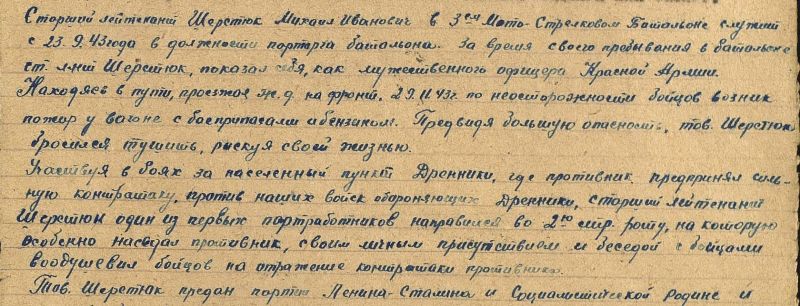 Старший лейтенант Шерстюк Михаил Иванович в 3ем Мото-Стрелковом Батальоне служит
с 23.9.43 года в должности парторга батальона. За время своего пребывания в батальоне
ст. л-нт Шерстюк, показал себя, как мужественного офицера Красной Армии.
Находясь в пути, проезжая ж.д. на фронт, 29.11.43г. по неосторожности бойцов возник
пожар у вагоне с боеприпасами и бензиком. Предвидя большую опасность, тов. Шерстюк
бросился тушить, рискуя своей жизнью.
Участвуя в боях за населенный пункт Дренники, где противник предпринял силь-
ную контратаку, против наших войск обороняющих Дренники, старший лейтенант
Шерстюк один из первых партработников направился во 2ю стр. роту, на которую
особенно наседал противник, своим личным присутствием и беседой с бойцами
воодушевил бойцов на отражение контратаки противника.
Тов. Шерстюк предан партии Ленина-Сталина и Социалистической Родине и